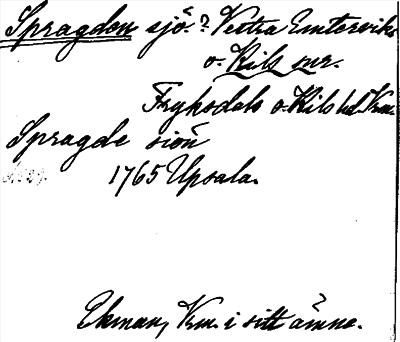 Spragdon sjö? Vestra Emterviks
o. Kils snr.
Fryksdals o. Kils hd. Vrm.
Spragde siön
1765 Upsala.
Ekman, Vrm. i sitt ämne.